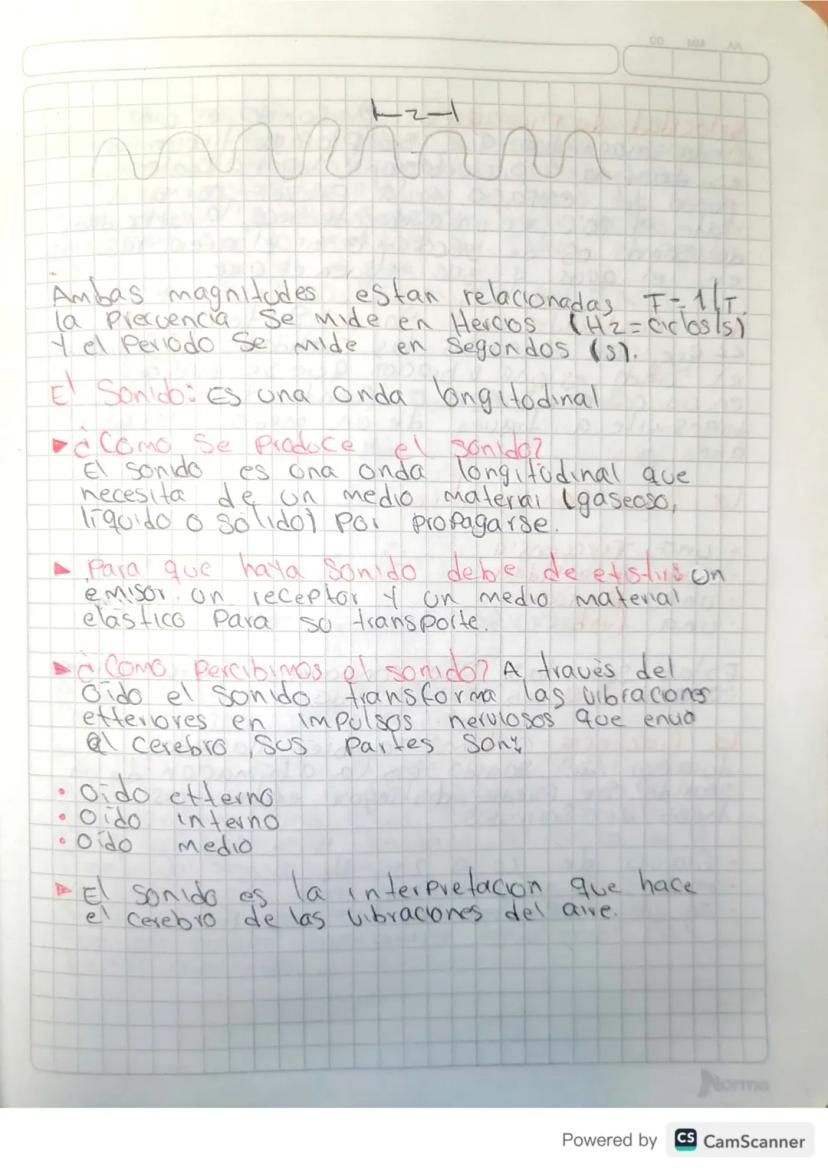 DD MM AA
⊢2⊣
Ambas magnitudes estan relacionadas F=1/T.
la Precuencia Se mide en Hercios (Hz=ciclos/s)
Y el Periodo Se mide en Segundos (s).
El Sonido: Es una onda longitudinal
¿Como Se Produce el sonido?
El sonido es una onda longitudinal que
necesita de un medio material (gaseoso,
líquido o solido) por propagarse.
Para que haya Sonido debe de existir un
emisor, un receptor y un medio material
elástico Para su transporte.
¿Como percibimos el sonido? A través del
Oído el sonido transforma las vibraciones
exteriores en impulsos nerviosos que envia
al cerebro, sus partes son:
• Oído externo
• Oído interno
• Oído medio
El sonido es la interpretacion que hace
el cerebro de las vibraciones del aire.
Norma
Powered by CS CamScanner